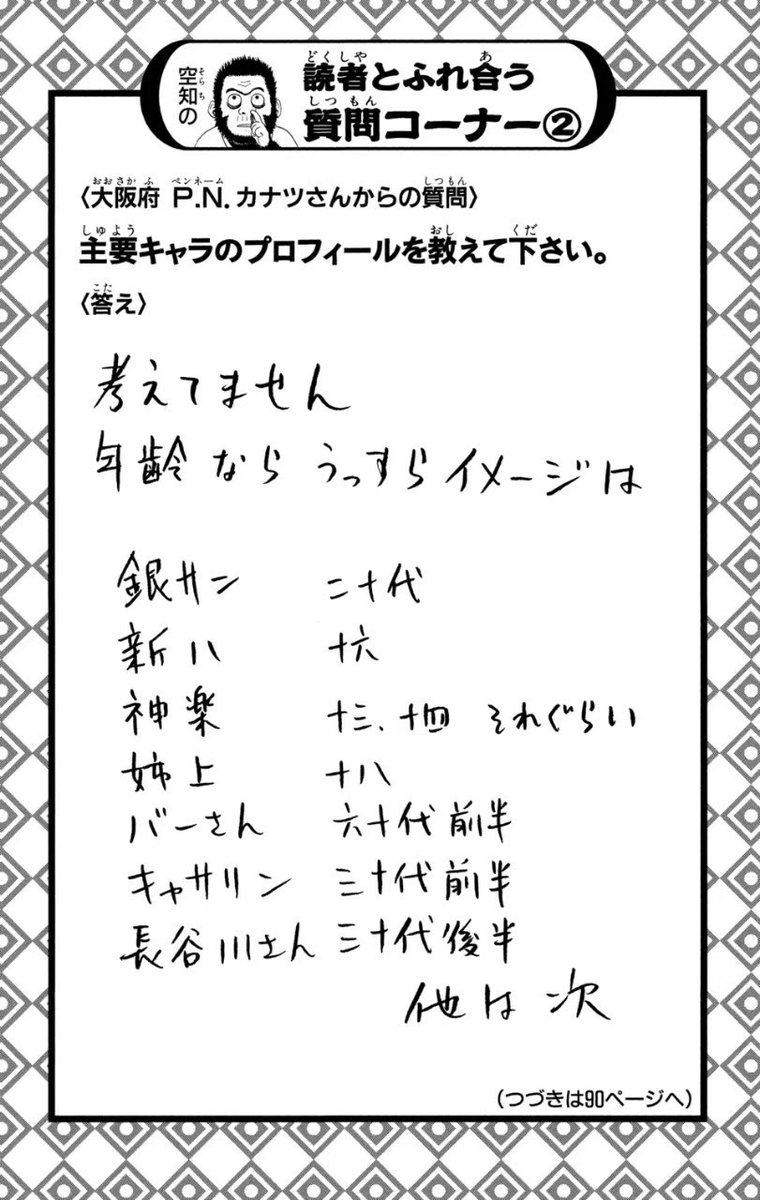 空知の
読者とふれ合う
質問コーナー②
〈大阪府 P.N.カナツさんからの質問〉
主要キャラのプロフィールを教えて下さい。
〈答え〉
考えてません
年齢なら うっすらイメージは
銀サン 二十代
新八 十六
神楽 十三、十四 それぐらい
姉上 十八
バーさん 六十代前半
キャサリン 三十代前半
長谷川さん 三十代後半
他は 次
(つづきは90ページへ)